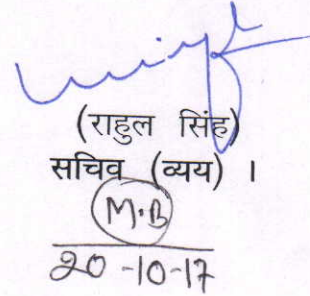 (राहुल सिंह)
सचिव (व्यय) ।
M.B
20-10-17